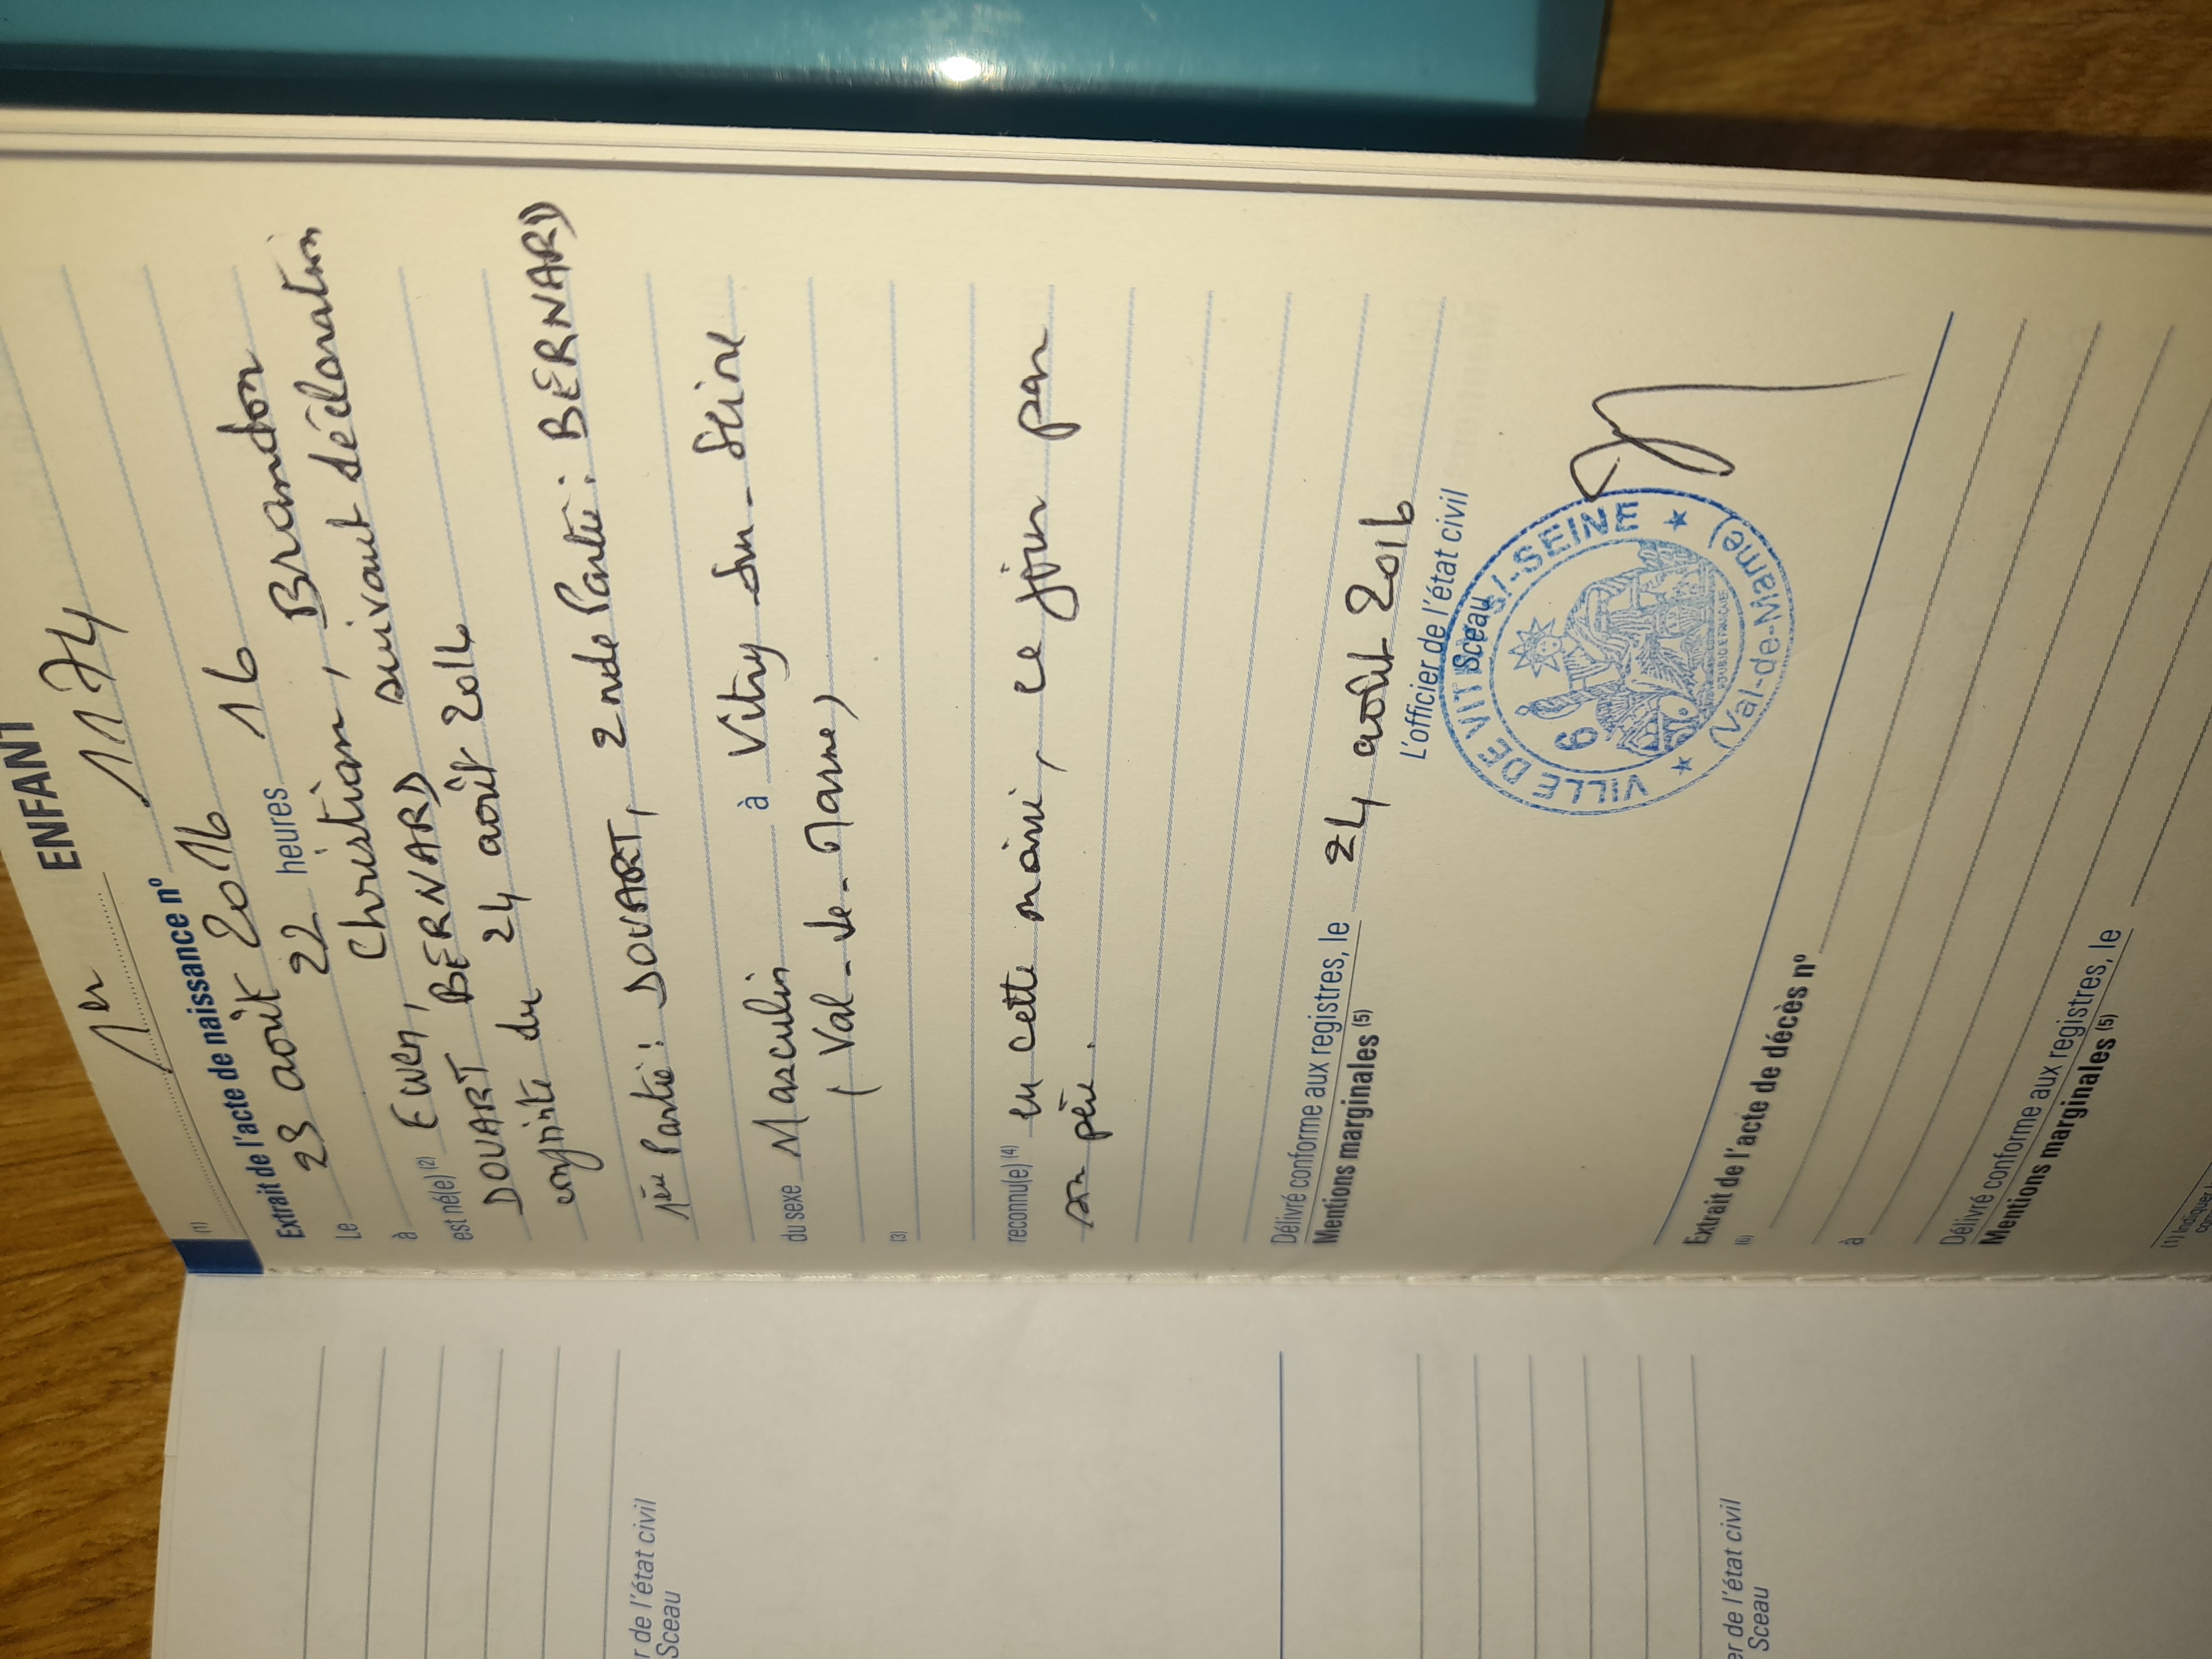 1er ENFANT
(1)
Extrait de l'acte de naissance n° 1174
Le 23 août 2016
à 22 heures 16
est né(e) (2) Ewen, Christian, Brandon
DOUART BERNARD suivant déclaration
conjointe du 24 août 2016
1ère Partie : DOUART, 2nde Partie : BERNARD
du sexe Masculin à Vitry-sur-Seine
(Val-de-Marne)
(3)
reconnu(e) (4) en cette mairie, ce jour par
son père.
Délivré conforme aux registres, le 24 août 2016
Mentions marginales (5)
L'officier de l'état civil
Sceau
VILLE DE VITRY S/-SEINE
(Val-de-Marne)
9
Extrait de l'acte de décès n°
(6)
à
Délivré conforme aux registres, le
Mentions marginales (5)
(1) Indiquer
r de l'état civil
Sceau
er de l'état civil
Sceau